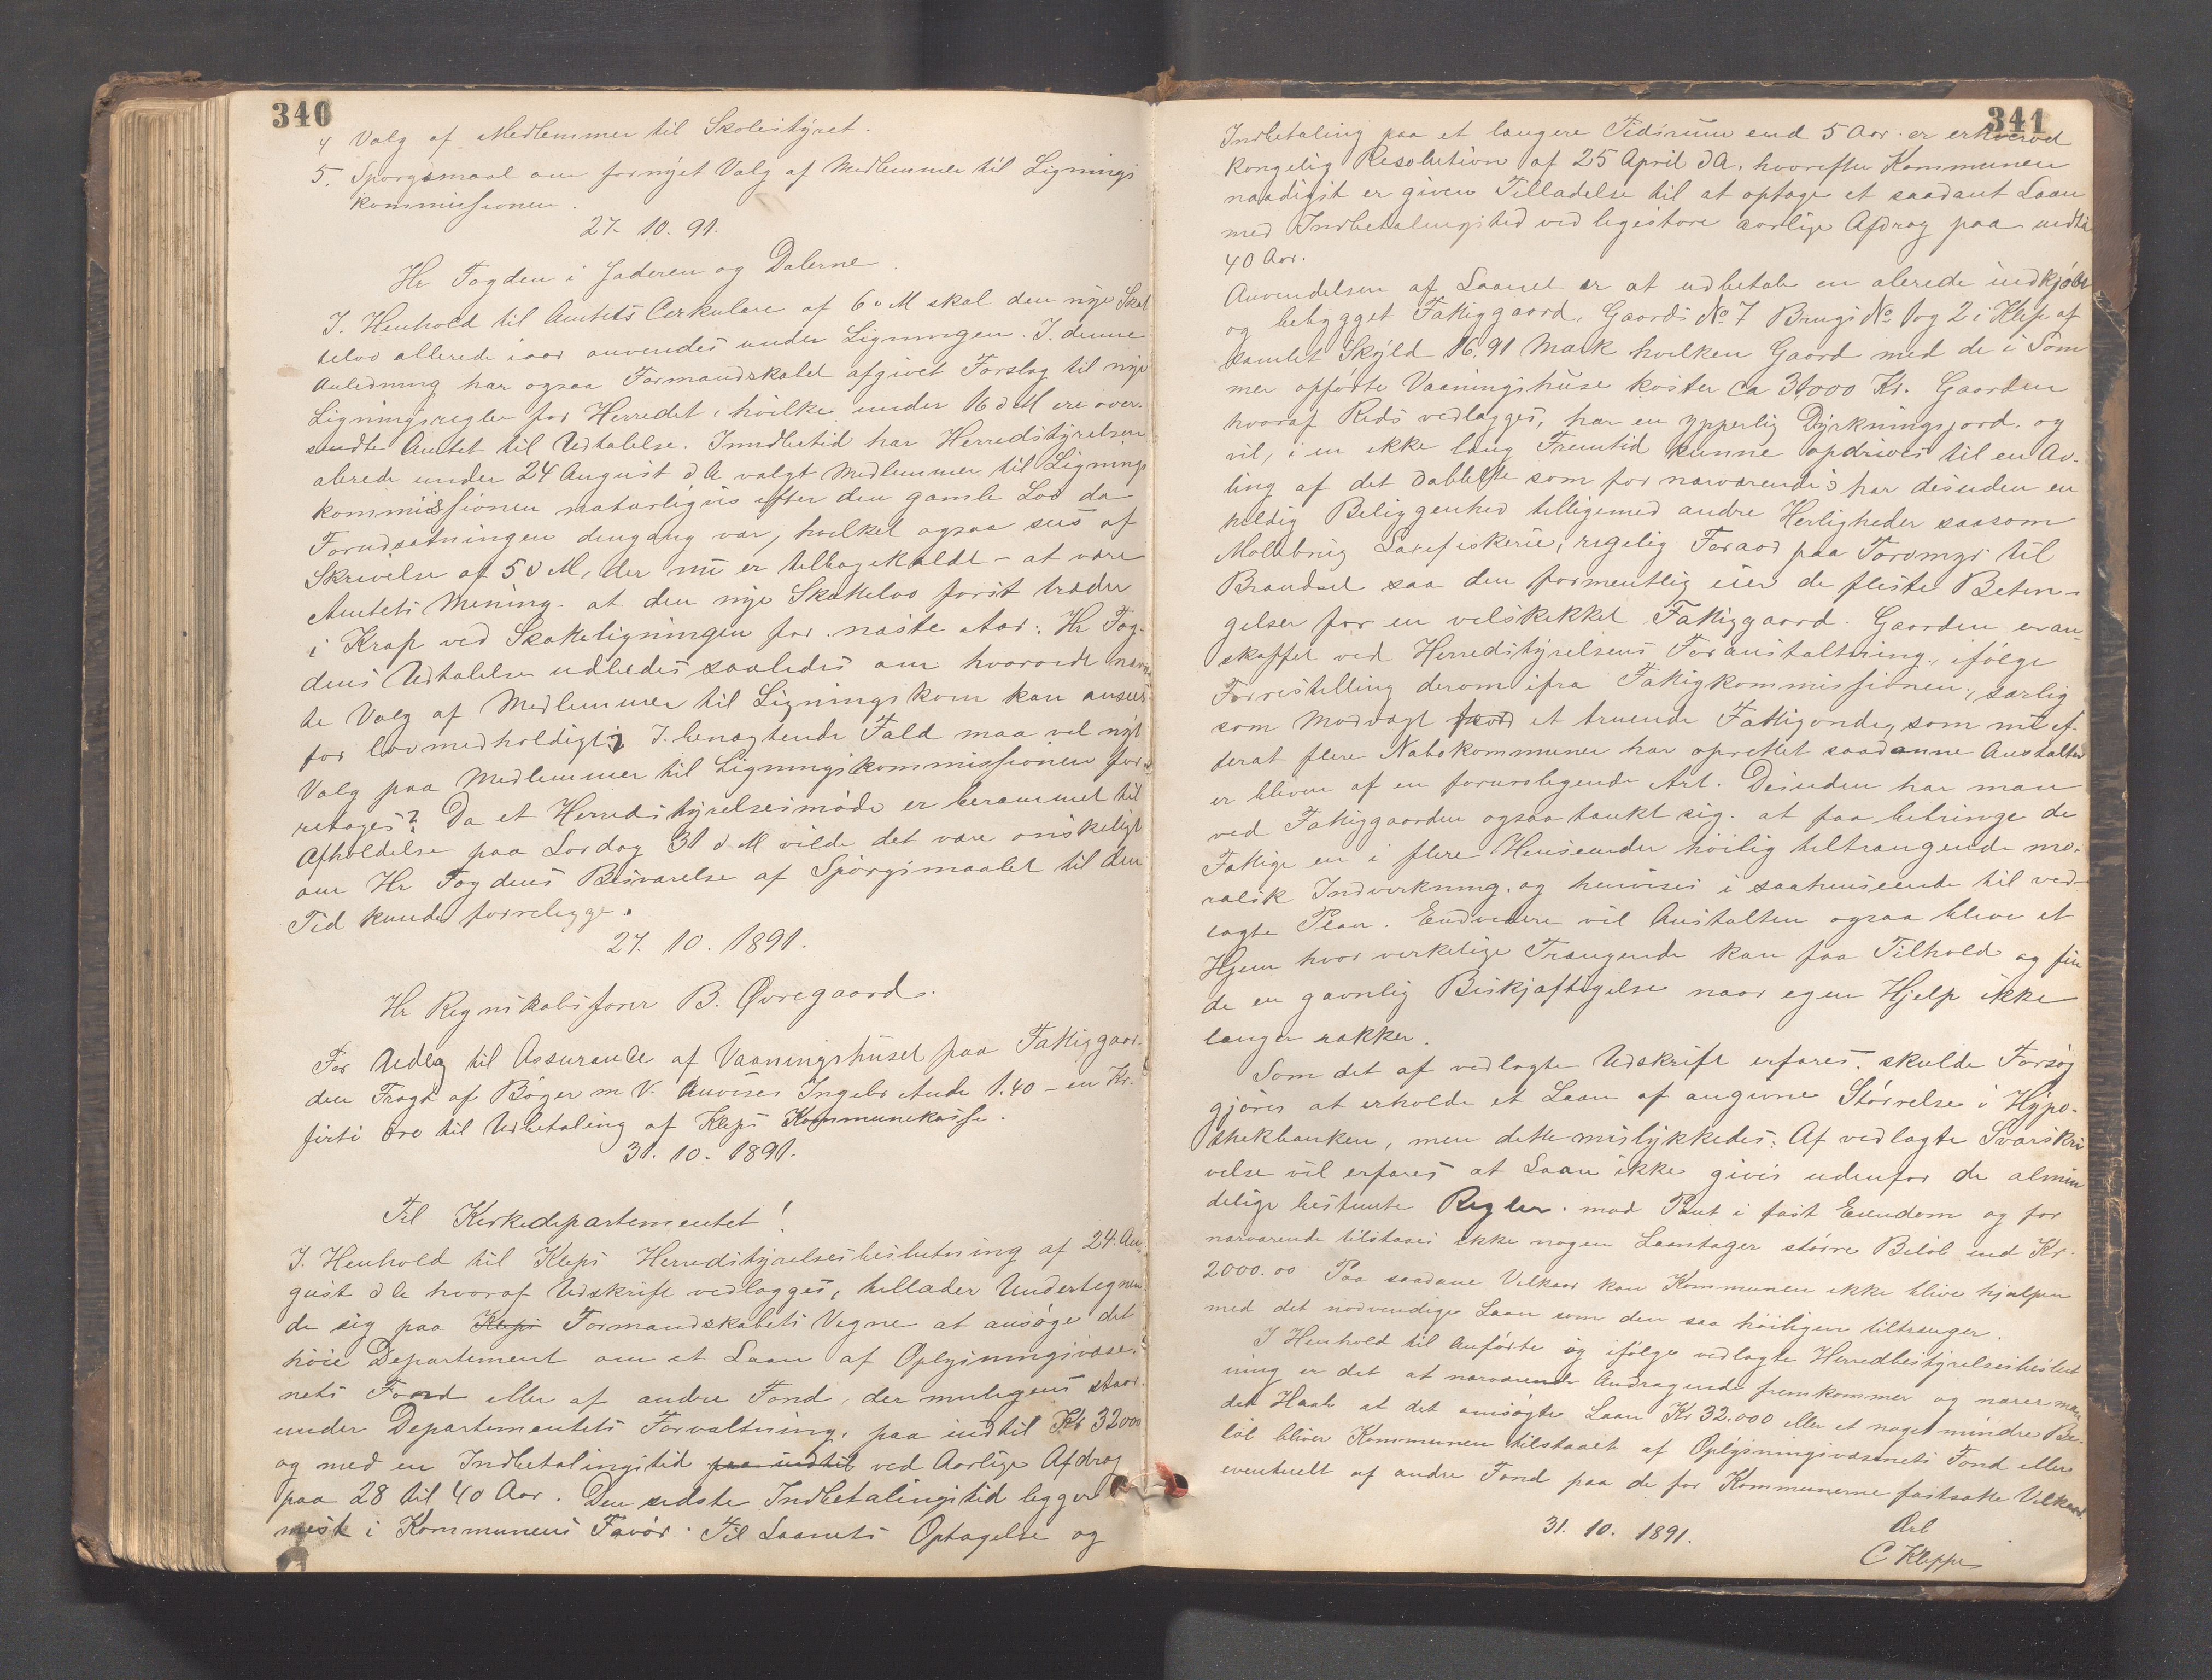 340
4 Valg af Medlemmer til Skolestyret.
5. Spørgsmaal om fornyet Valg af Medlemmer til Lignings
kommissionen.
27. 10. 91.
Hr Fogden i Jæderen og Dalerne.
I. Henhold til Amtets Cirkulære af 6 d M skal den nye Skat
telov allerede iaar anvendes under Ligningen. I. denne
Anledning har ogsaa Formandskabet afgivet Forslag til nye
Ligningsregler for Herredet, hvilke under 16 d M ere over-
sendte Amtet til Udtalelse. Imidlertid har Herredstyrelsen
alerede under 24 August d A valgt Medlemmer til Lignings
kommissionen naturligvis efter den gamle Lov da
Forudsætningen dengang var, hvilket ogsaa sees af
Skrivelse af 5 d M, der nu er tilbagekaldt - at være
Amtets Mening - at den nye Skattelov først træder
i Kraft ved Skatteligningen for næste Aar. Hr Fog-
dens Udtalelse udbedes saaledes om hvorvidt nævn-
te Valg af Medlemmer til Ligningskom kan ansees
for lovmedholdigt; I. benægtende Fald maa vel nyt
Valg paa Medlemmer til Ligningskommissionen fore-
retages? Da et Herredstyrelsesmøde er berammet til
Afholdelse paa Lørdag 31 d M vilde det være ønskeligt
om Hr Fogdens Besvarelse af Spørgsmaalet til den
Tid kunde forreligge.
27. 10. 1891.
Hr Regnskabsfører B. Øvregaard.
For Udlæg til Assurance af Vaaningshuset paa Fattiggaar-
den Fragt af Bøger m V. Anvises Ingebr Aude 1.40 - en Kr.
firti øre til Udbetaling af Kleps Kommunekasse.
31. 10. 1891.
Til Kirkedepartementet!
I. Henhold til Kleps Herredstyrelsesbeslutning af 24. Au-
gust d A hvoraf Udskrift vedlægges, tillader Undertegne-
de sig paa Kleps Formandskabets Vegne at ansøge det
høie Departement om et Laan af Oplysningsvæse-
nets Fond eller af andre Fond, der muligens staar
under Departementets Forvaltning, paa indtil Kr 32000
og med en Indbetalingstid paa indtil ved Aarlige Afdrag
paa 28 til 40 Aar. Den sidste Indbetalingstid ligger
mest i Kommunens Favør. Til Laanets Optagelse og
341
Indbetaling paa et længere Tidsrum end 5 Aar er erhvervd
kongelig Resolution af 25 April d A. hvorefter Kommunen
naadigst er given Tilladelse til at optage et saadant Laan
med Indbetalingstid ved ligestore aarlige Afdrag paa indtil
40 Aar.
Anvendelsen af Laanet er at udbetale en alerede indkjøbt
og bebygget Fattiggaard. Gaards No 7 Brugs No 1 og 2 i Klep af
samlet Skyld 16,91 Mark hvilken Gaard med de i Som
mer opførte Vaaningshuse koster ca 31.000 Kr. Gaarden
hvoraf Rids vedlægges, har en ypperlig Dyrkningsjord, og
vil, i en ikke lang Fremtid kunne opdrives til en Av-
ling af det dobbelte som for nærværende; har desuden en
heldig Beliggenhed tilligemed andre Herligheder saasom
Møllebrug Laxefiskerie, rigelig Foraad paa Torvmyr til
Brændsel saa den formentlig eier de fleste Betin-
gelser for en velskikket Fattiggaard. Gaarden er an-
skaffet ved Herredstyrelsens Foranstaltning, ifølge
Forrestilling derom ifra Fattigkommissionen, særlig
som Modvægt imod et truende Fattigonde, som nu ef-
terat flere Nabokommuner har oprettet saadanne Anstalter
er bleven af en foruroligende Art. Desuden har man
ved Fattiggaarden ogsaa tænkt sig at faa bibringe de
Fattige en i flere Henseender høilig tiltrængende mo-
ralsk Indvirkning, og henvises i saahenseende til ved-
lagte Plan. Endvidere vil Anstalten ogsaa blive et
Hjem hvor verkelige Trængende kan faa Tilhold og fin
de en gavnlig Beskjæftigelse naar egen Hjelp ikke
længer rækker.
Som det af vedlagte Udskrift erfares, skulde Forsøg
gjøres at erholde et Laan af angivne Størrelse i Hypo-
thekbanken, men dette mislykkedes; Af vedlagte Svarskri
velse vil erfares at Laan ikke gives udenfor de almin
delige bestemte Regler. mod Pant i fast Eiendom og for
nærværende tilstaaes ikke nogen Laantager større Beløb end Kr.
2000.00 Paa saadane Vilkaar kan Kommunen ikke blive hjælpen
med det nødvendige Laan som den saa høiligen tiltrænger.
I Henhold til Anførte og ifølge vedlagte Herredbestyrelsesbeslut
ning er det at nærværende Andragende fremkommer og nærer man
det Haab at det ansøgte Laan Kr 32.000 eller et noget mindre Be-
løb bliver Kommunen tilstaaet af Oplysningsvæsenets Fond eller
eventuelt af andre Fond paa de for Kommunerne fastsatte Vilkaar.
31. 10. 1891.
Ærb
C Kleppe